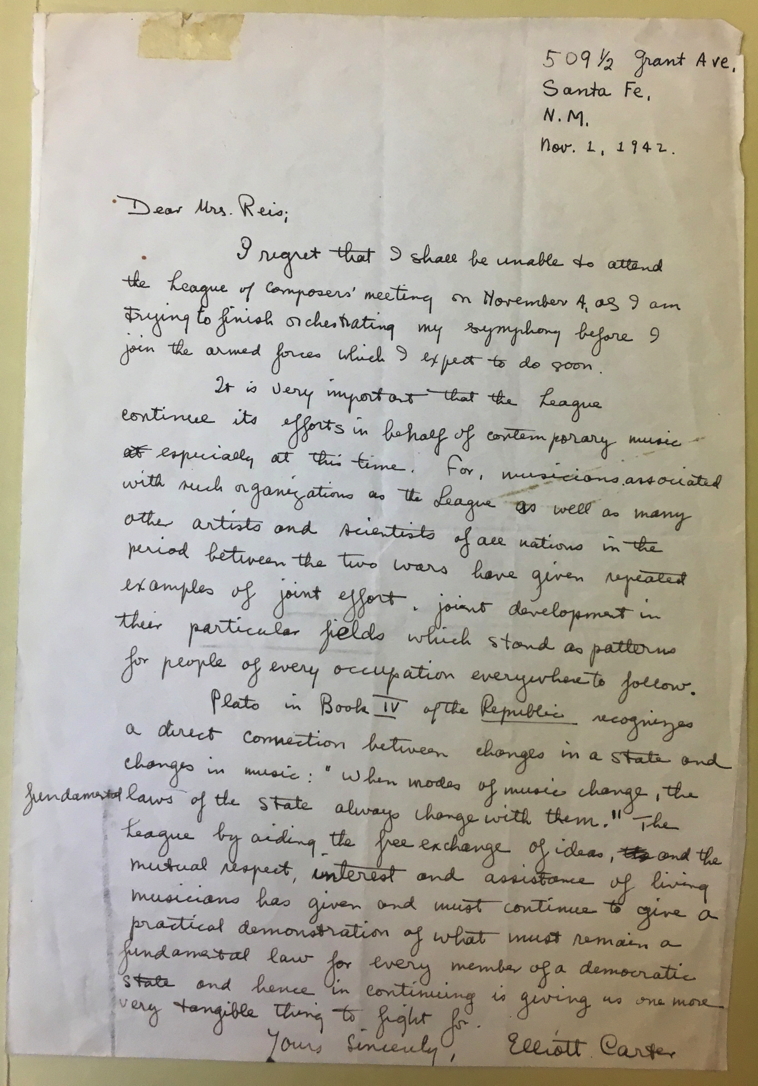 509 1/2 Grant Ave.
Santa Fe,
N.M.
Nov. 1, 1942.
Dear Mrs. Reis;
I regret that I shall be unable to attend
the League of Composers' meeting on November 4, as I am
trying to finish orchestrating my symphony before I
join the armed forces which I expect to do soon.
It is very important that the League
continue its efforts in behalf of contemporary music
at especially at this time. For, musicians associated
with such organizations as the League as well as many
other artists and scientists of all nations in the
period between the two wars have given repeated
examples of joint effort, joint development in
their particular fields which stand as patterns
for people of every occupation everywhere to follow.
Plato in Book IV of the Republic recognizes
a direct connection between changes in a state and
changes in music: "When modes of music change, the
fundamental laws of the State always change with them." The
League by aiding the free exchange of ideas, and the
mutual respect, interest and assistance of living
musicians has given and must continue to give a
practical demonstration of what must remain a
fundamental law for every member of a democratic
state and hence in continuing is giving us one more
very tangible thing to fight for.
Yours Sincerely, Elliott Carter